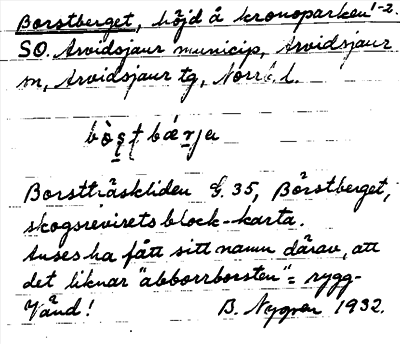 Borstberget, höjd å kronoparken 1-2.
SO. Arvidsjaur municip, Arvidsjaur
sn, Arvidsjaur tg, Norrb. l.
Borstträskliden G. 35, Bårstberget,
skogsrevirets block-karta.
Anses ha fått sitt namn därav, att
det liknar "abborrborsten" = rygg-
Vänd! B. Nygren 1932.